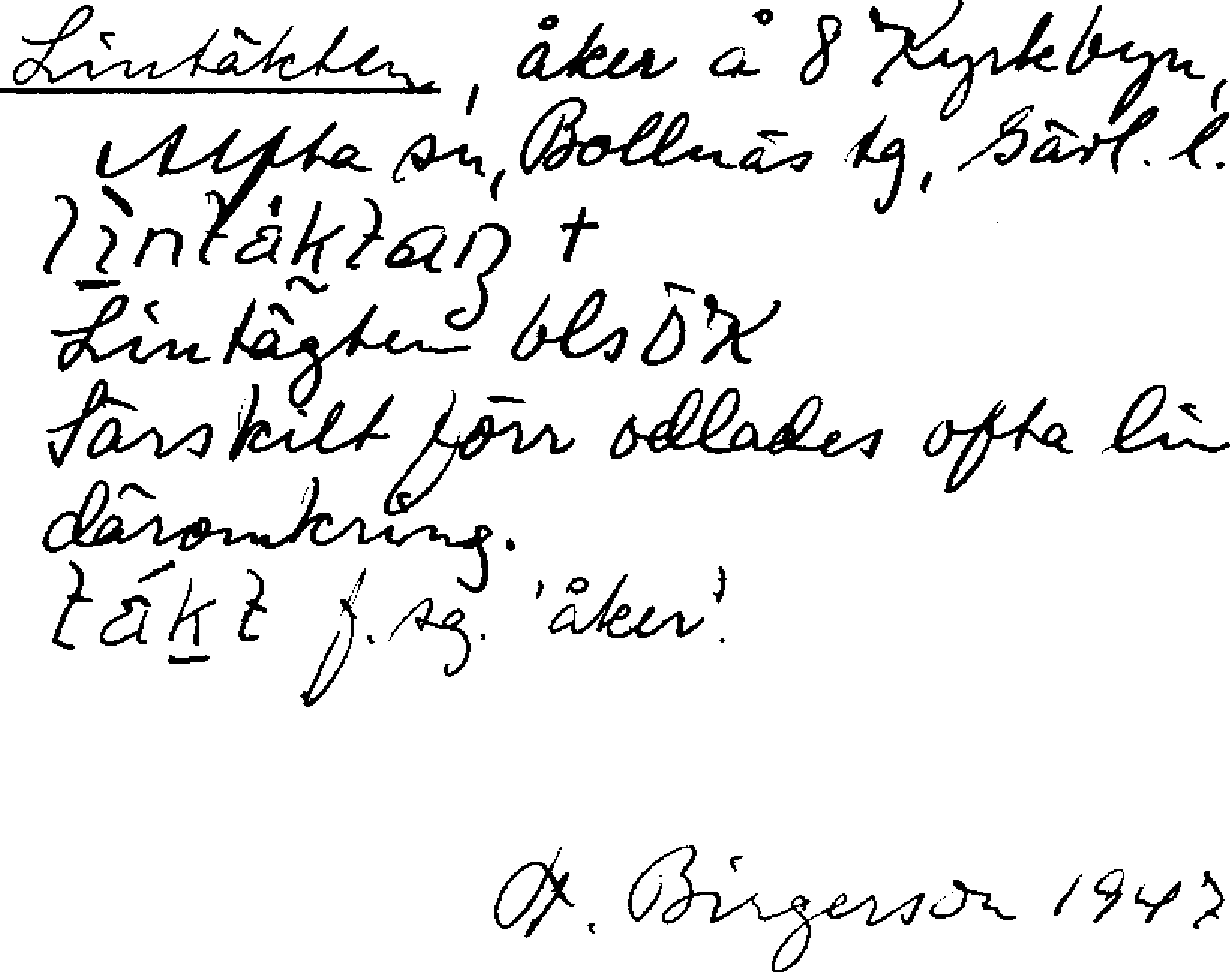 Lintäkten, åker å 8 Kyrkbyn,
Alfta sn, Bollnäs tg, Gävl. l.
lìntåktan +
Lintägten bls ÖK
Särskilt förr odlades ofta lin
däromkring.
tákt f. sg. 'åker'.
H. Birgerson 1947